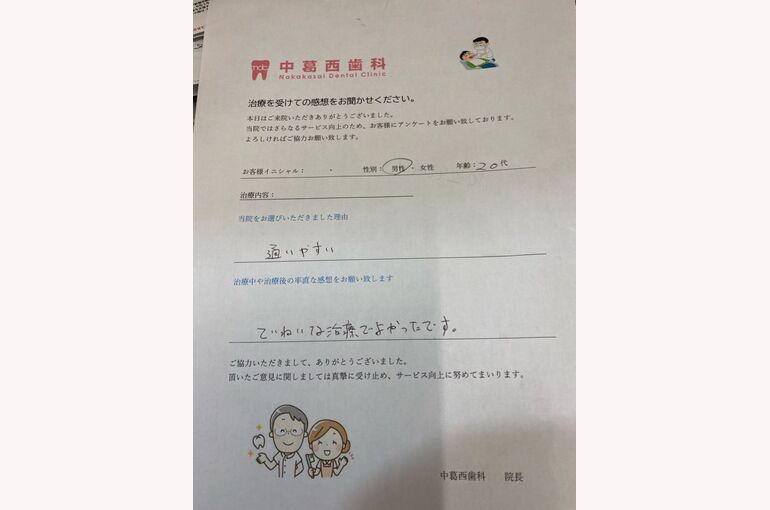 ndc 中葛西歯科
Nakakasai Dental Clinic
治療を受けての感想をお聞かせください。
本日はご来院いただきありがとうございました。
当院ではさらなるサービス向上のため、お客様にアンケートをお願い致しております。
よろしければご協力お願い致します。
お客様イニシャル： ・ 性別：男性・女性 年齢：20代
治療内容：
当院をお選びいただきました理由
通いやすい
治療中や治療後の率直な感想をお願い致します
ていねいな治療でよかったです。
ご協力いただきまして、ありがとうございました。
頂いたご意見に関しましては真摯に受け止め、サービス向上に努めてまいります。
中葛西歯科 院長